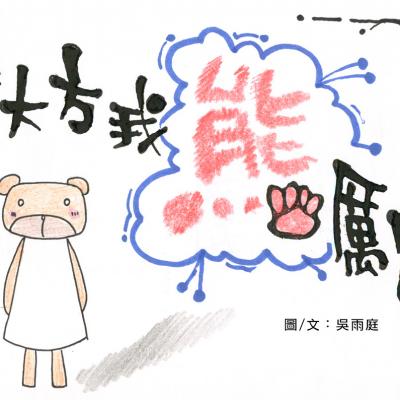 大方我熊厲
圖/文：吳雨庭